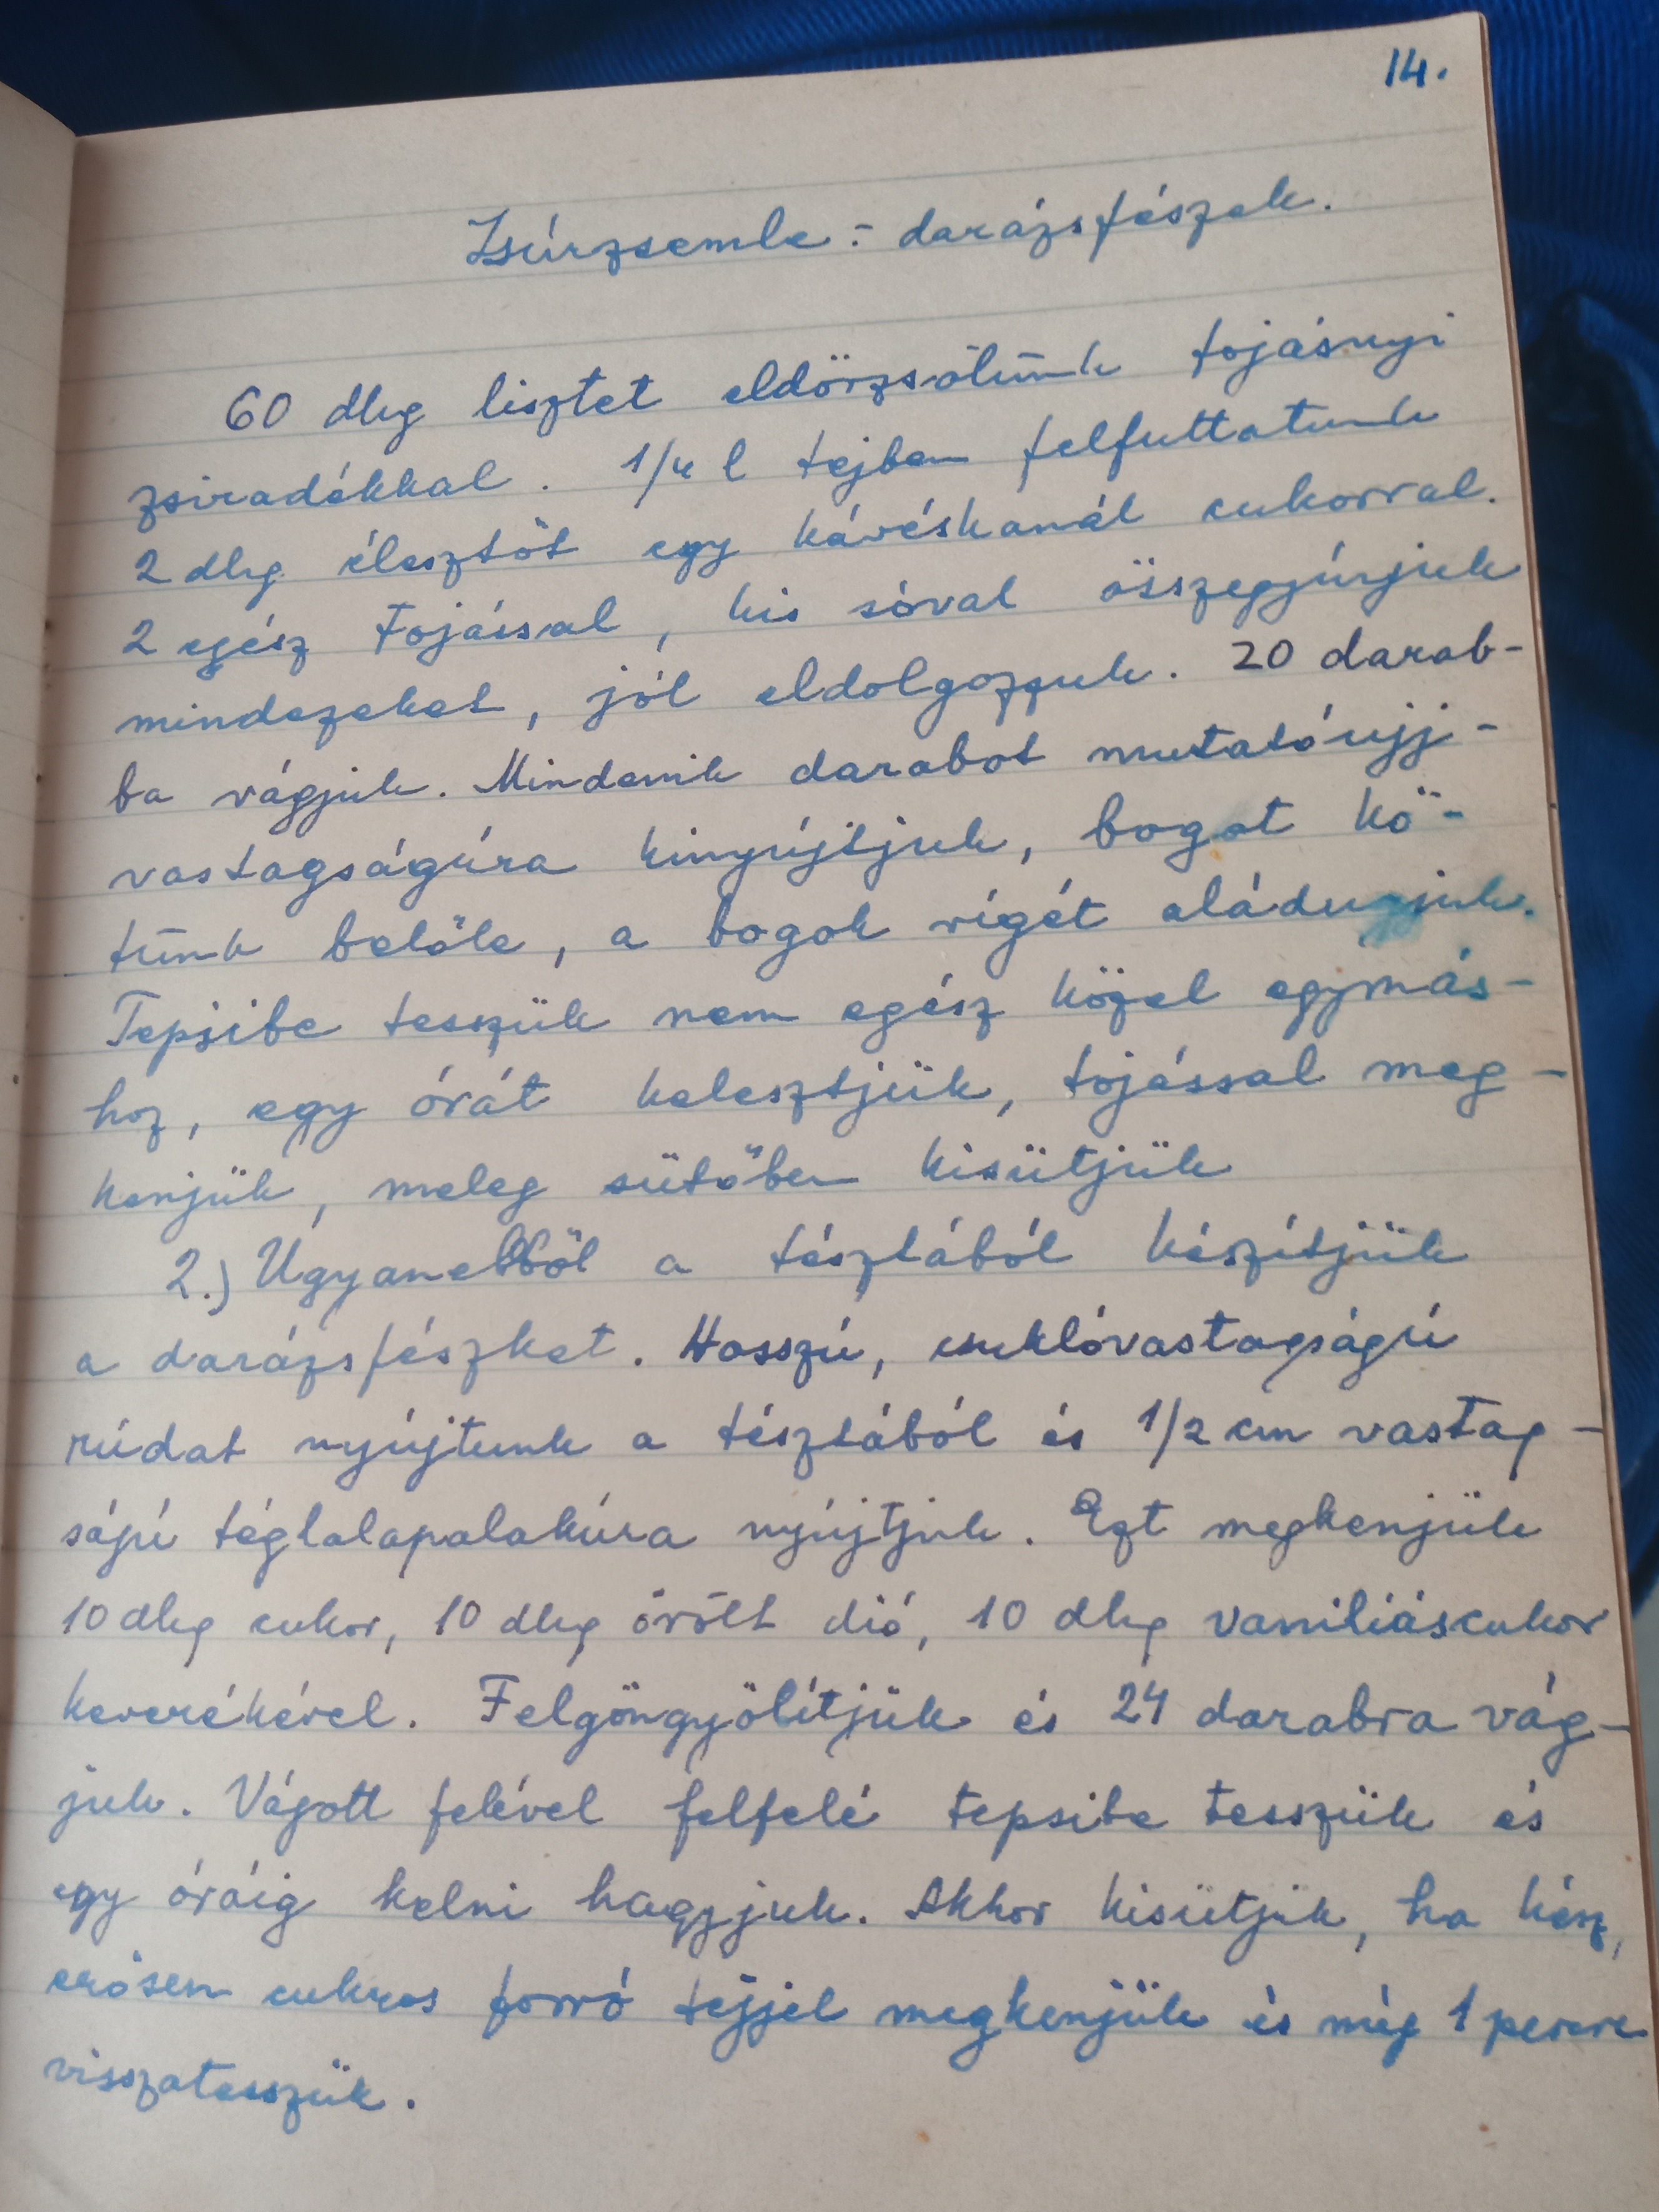 14.
Zsúrzsemle - darázsfészek.
60 dkg lisztet eldörzsölünk tojásnyi
zsiradékkal. 1/4 l tejben felfuttatunk
2 dkg élesztőt egy kávéskanál cukorral.
2 egész tojással, kis sóval összegyúrjuk
mindezeket, jól eldolgozzuk. 20 darab-
ba vágjuk. Mindenik darabot mutatóujj-
vastagságúra kinyújtjuk, bogot kö-
tünk belőle, a bogok végét aládugjuk.
Tepsibe tesszük nem egész közel egymás-
hoz, egy órát kelesztjük, tojással meg-
kenjük, meleg sütőben kisütjük
2.) Ugyanebből a tésztából készítjük
a darázsfészket. Hosszú, csuklóvastagságú
rúdat nyújtunk a tésztából és 1/2 cm vastag-
ságú téglalapalakúra nyújtjuk. Ezt megkenjük
10 dkg cukor, 10 dkg őrölt dió, 10 dkg vaniliáscukor
keverékével. Felgöngyölítjük és 24 darabra vág-
juk. Vágott felével felfelé tepsibe tesszük és
egy óráig kelni hagyjuk. Akkor kisütjük, ha kész,
erősen cukros forró tejjel megkenjük és még 1 percre
visszatesszük.